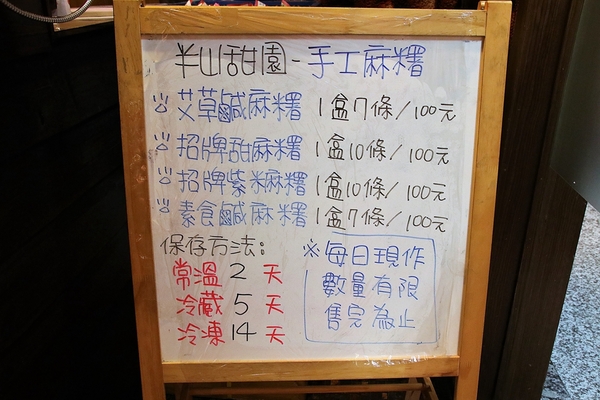 半山甜園-手工麻糬
艾草鹹麻糬 1盒7條/100元
招牌甜麻糬 1盒10條/100元
招牌紫米麻糬 1盒10條/100元
素食鹹麻糬 1盒7條/100元
保存方法:
常溫 2 天
冷藏 5 天
冷凍 14 天
※每日現作
數量有限
售完為止